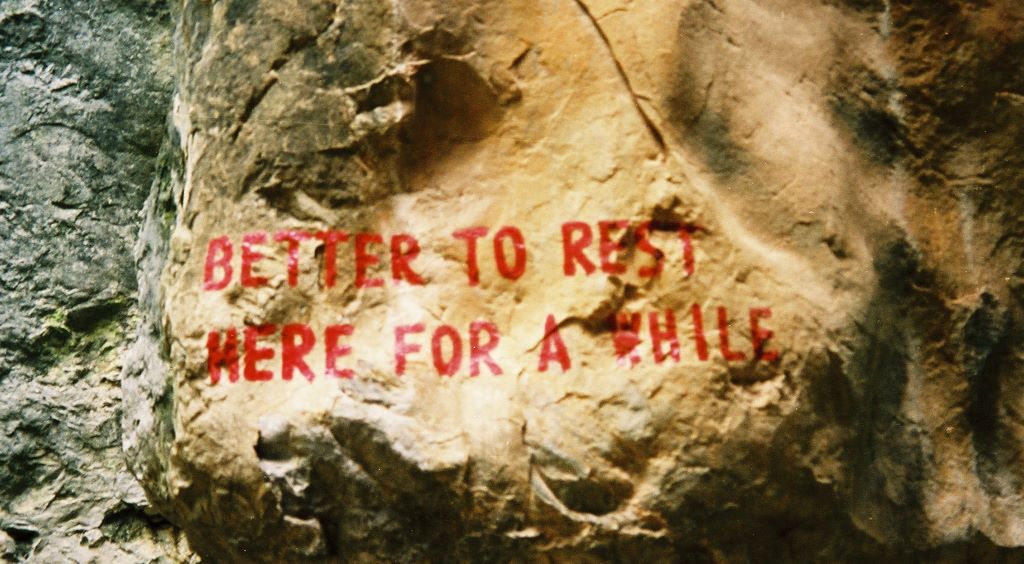 BETTER TO REST
HERE FOR A WHILE